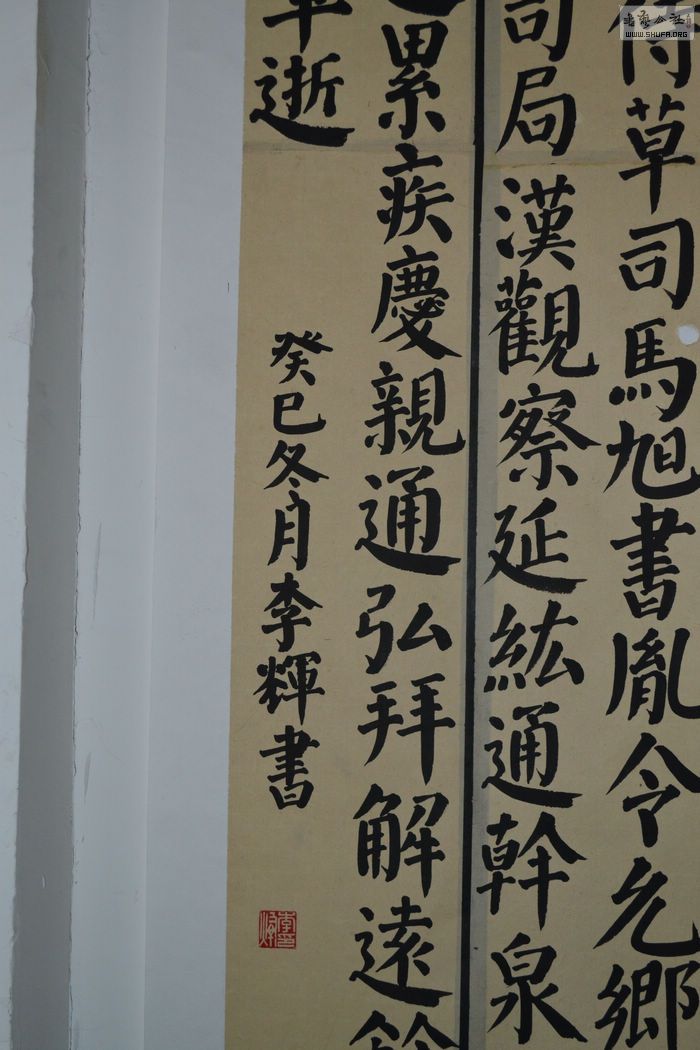 侍草司馬旭書胤令允鄉
司局漢觀察延紘通幹泉
累疾慶親通弘拜解遠
平逝
癸巳冬月李輝書
WWW.SHUFA.ORG